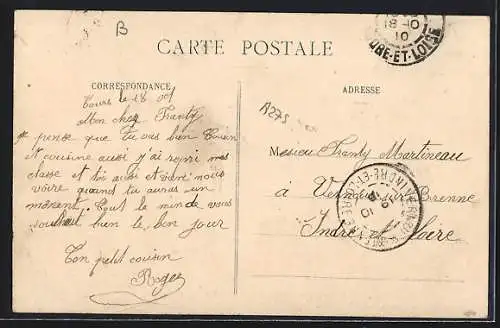 B
CARTE POSTALE
CORRESPONDANCE
ADRESSE
Tours le 18
Mon cher Franty
pense que tu vas bien Cousin
et cousine aussi j'ai repri mes
classe et toi aussi et vient nous
voire quand tu auras un
moment. Tout le monde vous
souhait bien le bon jour
Ton petit cousin
Roger
A275
Messieu Franty Martineau
à Vernou sur Brenne
Indre et Loire
10
INDRE-ET-LOIRE
INDRE-ET-LOIRE